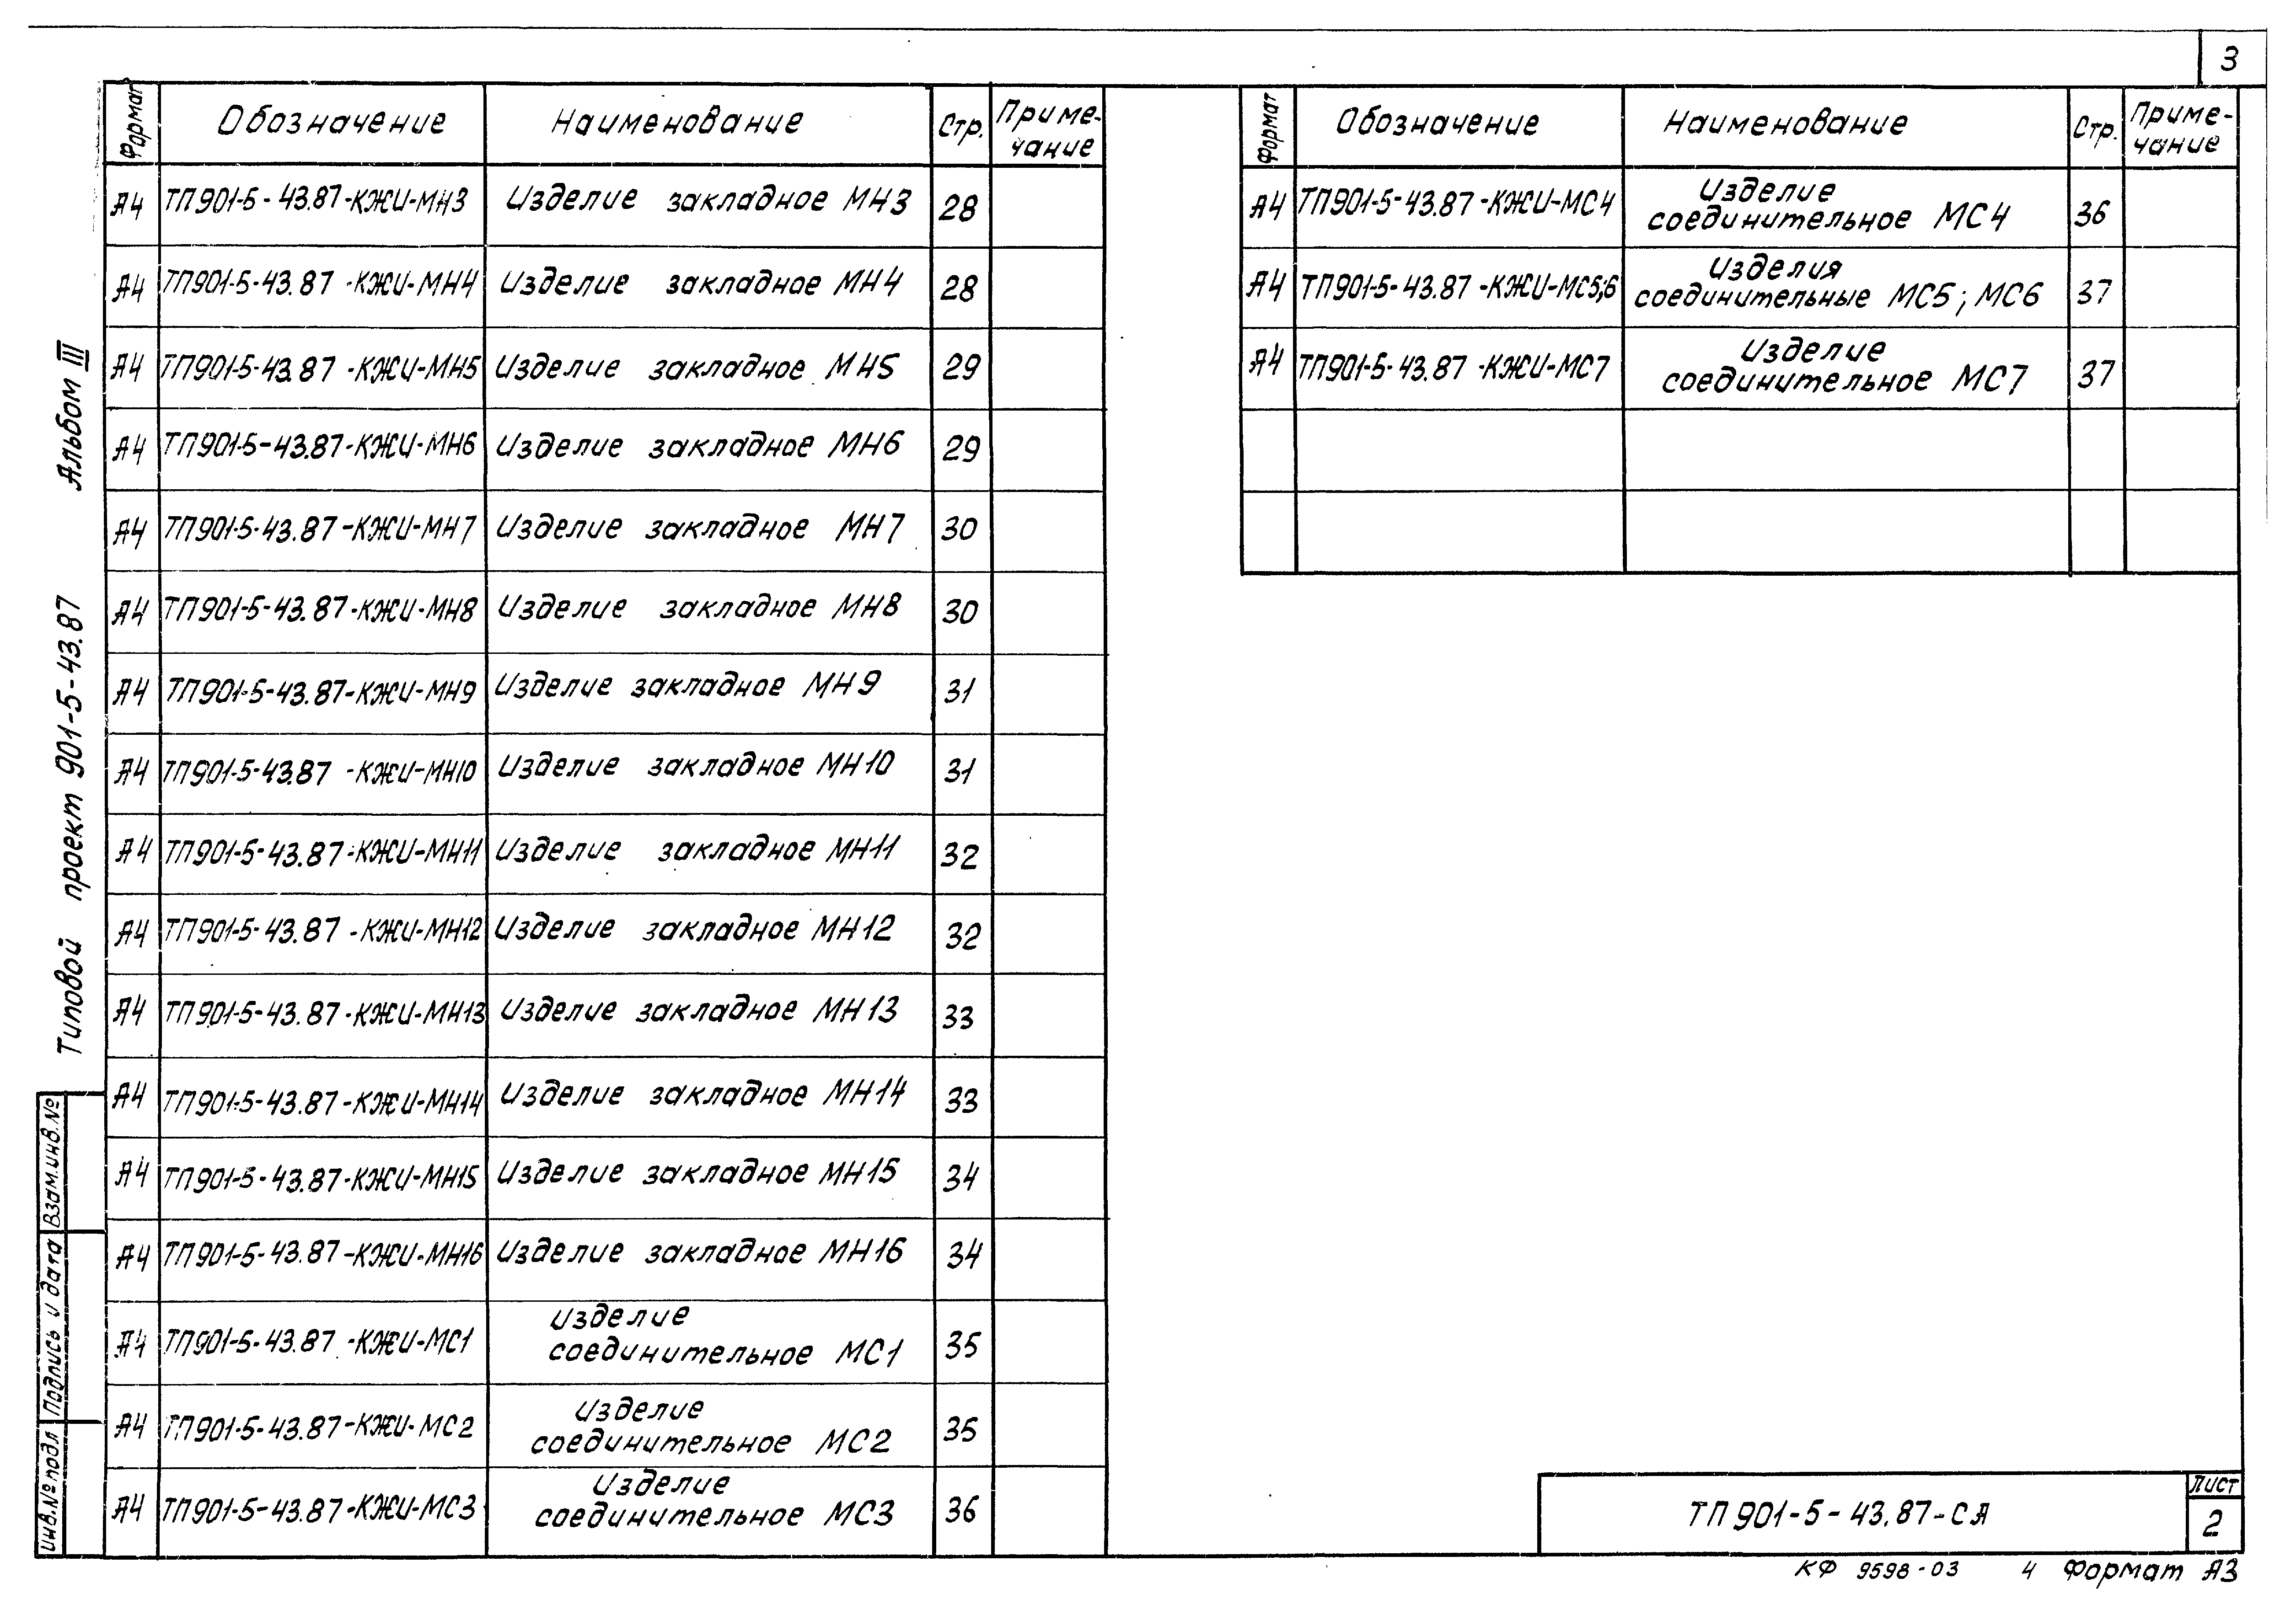 3
Формат Обозначение Наименование Стр. Приме-
чание
А4 ТП901-5-43.87-КЖИ-МН3 Изделие закладное МН3 28
А4 ТП901-5-43.87-КЖИ-МН4 Изделие закладное МН4 28
А4 ТП901-5-43.87-КЖИ-МН5 Изделие закладное МН5 29
А4 ТП901-5-43.87-КЖИ-МН6 Изделие закладное МН6 29
А4 ТП901-5-43.87-КЖИ-МН7 Изделие закладное МН7 30
А4 ТП901-5-43.87-КЖИ-МН8 Изделие закладное МН8 30
А4 ТП901-5-43.87-КЖИ-МН9 Изделие закладное МН9 31
А4 ТП901-5-43.87-КЖИ-МН10 Изделие закладное МН10 31
А4 ТП901-5-43.87-КЖИ-МН11 Изделие закладное МН11 32
А4 ТП901-5-43.87-КЖИ-МН12 Изделие закладное МН12 32
А4 ТП901-5-43.87-КЖИ-МН13 Изделие закладное МН13 33
А4 ТП901-5-43.87-КЖИ-МН14 Изделие закладное МН14 33
А4 ТП901-5-43.87-КЖИ-МН15 Изделие закладное МН15 34
А4 ТП901-5-43.87-КЖИ-МН16 Изделие закладное МН16 34
А4 ТП901-5-43.87-КЖИ-МС1 Изделие
соединительное МС1 35
А4 ТП901-5-43.87-КЖИ-МС2 Изделие
соединительное МС2 35
А4 ТП901-5-43.87-КЖИ-МС3 Изделие
соединительное МС3 36
Формат Обозначение Наименование Стр. Приме-
чание
А4 ТП901-5-43.87-КЖИ-МС4 Изделие
соединительное МС4 36
А4 ТП901-5-43.87-КЖИ-МС5;6 Изделия
соединительные МС5; МС6 37
А4 ТП901-5-43.87-КЖИ-МС7 Изделие
соединительное МС7 37
Типовой проект 901-5-43.87 Альбом III
Инв.№подл Подпись и дата Взам.инв.№
ТП901-5-43.87-СА
Лист
2
КФ 9598-03 4 Формат А3